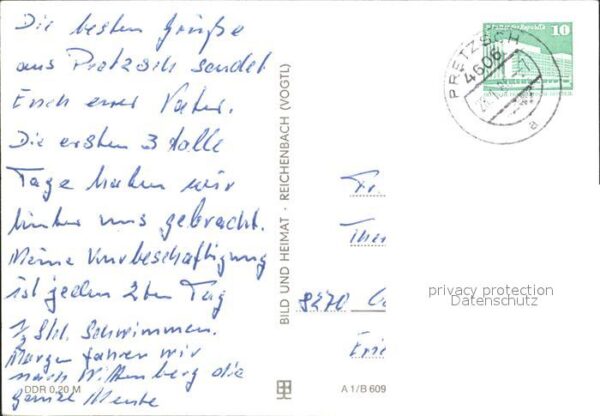 Die besten Grüße
aus Pretzsch sendet
Euch euer Vater.
Die ersten 3 tolle
Tage haben wir
hinter uns gebracht.
Meine Kurbeschäftigung
ist jeden 2ten Tag
½ Std. Schwimmen.
Morgen fahren wir
nach Wittenberg die
ganze Meute
DDR 0,20 M
BILD UND HEIMAT · REICHENBACH (VOGTL)
A 1/B 609
10
PRETZSCH
4606
a
8270
privacy protection
Datenschutz